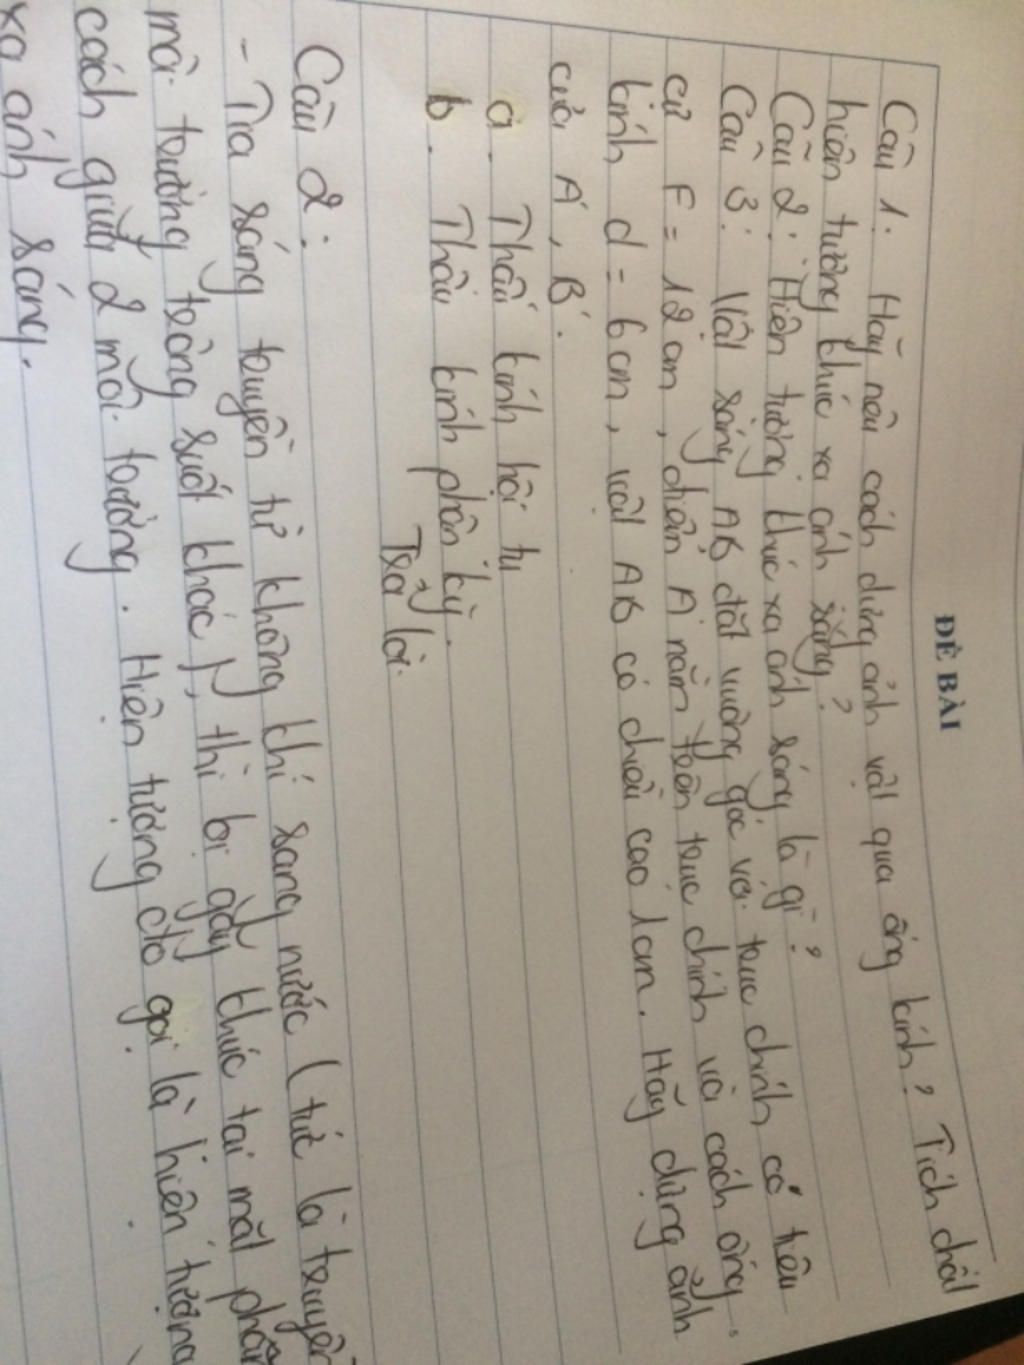 ĐỀ BÀI
Câu 1: Hãy nêu cách dựng ảnh vật qua ống kính? Tích chất
hiện tượng khúc xạ ánh sáng?
Câu 2: Hiện tượng khúc xạ ánh sáng là gì?
Câu 3: Vật sáng AB đặt vuông góc với trục chính có tiêu
cự F = 12 cm, điểm A nằm trên trục chính và cách ống
kính d = 6 cm, vật AB có chiều cao 1cm. Hãy dựng ảnh
của A', B'.
a. Thấu kính hội tụ
b. Thấu kính phân kỳ.
Trả lời
Câu 2:
- Tia sáng truyền từ không khí sang nước (tức là truyền
môi trường trong suốt khác), thì bị gãy khúc tại mặt phân
cách giữa 2 môi trường. Hiện tượng đó gọi là hiện tượng
xạ ánh sáng.